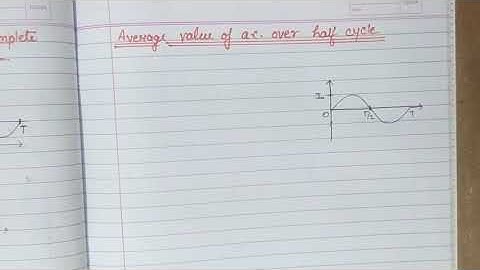 mplete
Average value of a.c. over half cycle
I.
O
T/2
T
T